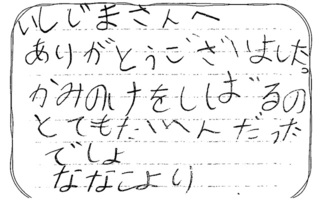 いしじまさんへ
ありがとうございました。
かみのけをしばるの
とてもたいへんだった
でしょ
ななこより